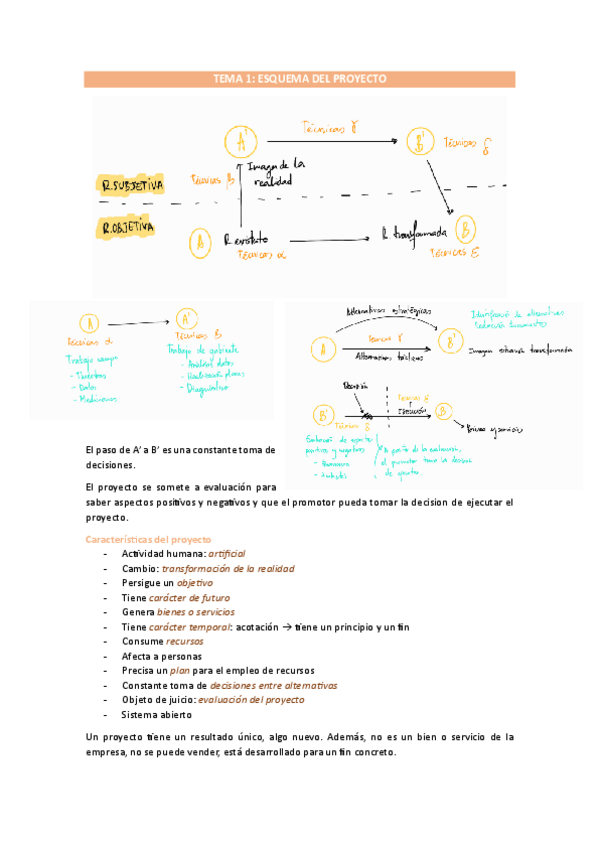 TEMA 1: ESQUEMA DEL PROYECTO
A'
Técnicas γ
B'
Técnicas δ
Imagen de la
realidad
Técnicas β
R.SUBJETIVA
R.OBJETIVA
A
R existente
Técnicas α
R transformada
B
Técnicas ε
A
A'
Técnicas α
Técnicas β
Trabajo campo
- Datos
- Mediciones
Trabajo de gabinete
- Análisis datos
- Diagnóstico
Alternativas estratégicas
A
Técnicas γ
B'
Alternativas tácticas
Identificación de alternativas
Imagen transformada
Decisión
B'
Técnicas δ
Técnicas ε
Ejecución
B
Bienes y servicios
Evaluación de aspectos
positivos y negativos
A partir de la evaluación,
el promotor toma la decisión
de ejecutar
El paso de A' a B' es una constante toma de
decisiones.
El proyecto se somete a evaluación para
saber aspectos positivos y negativos y que el promotor pueda tomar la decision de ejecutar el
proyecto.
Características del proyecto
- Actividad humana: artificial
- Cambio: transformación de la realidad
- Persigue un objetivo
- Tiene carácter de futuro
- Genera bienes o servicios
- Tiene carácter temporal: acotación → tiene un principio y un fin
- Consume recursos
- Afecta a personas
- Precisa un plan para el empleo de recursos
- Constante toma de decisiones entre alternativas
- Objeto de juicio: evaluación del proyecto
- Sistema abierto
Un proyecto tiene un resultado único, algo nuevo. Además, no es un bien o servicio de la
empresa, no se puede vender, está desarrollado para un fin concreto.